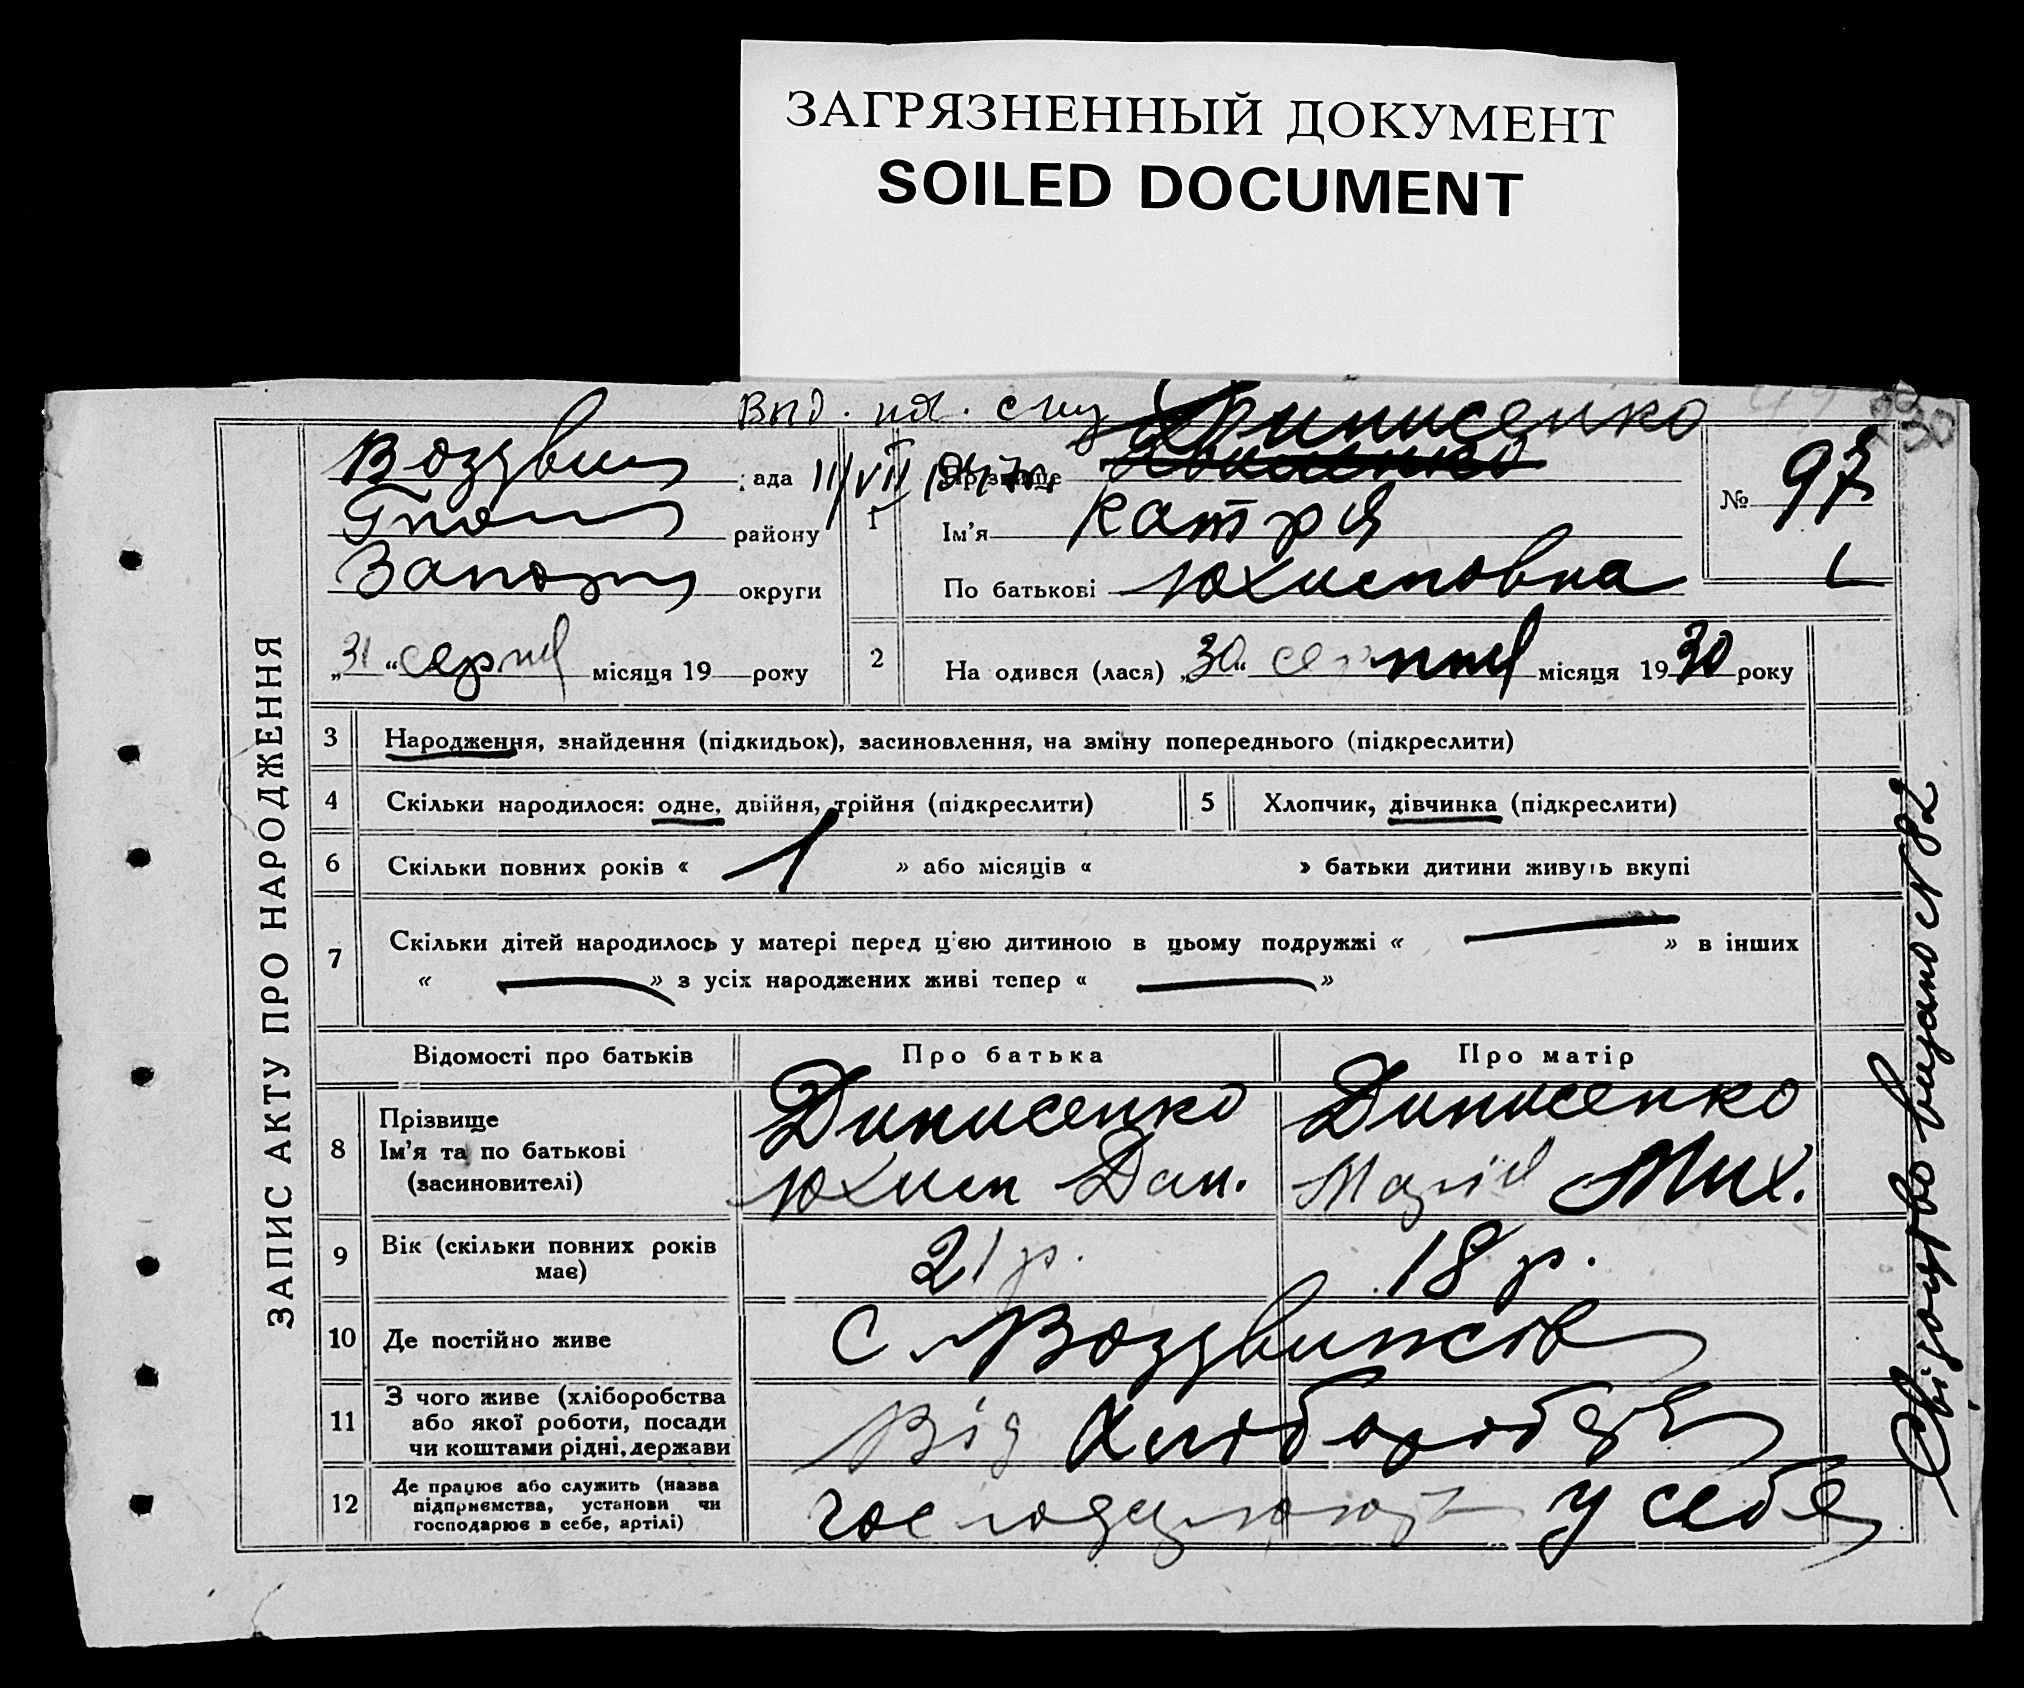 ЗАГРЯЗНЕННЫЙ ДОКУМЕНТ
SOILED DOCUMENT
ЗАПИС АКТУ ПРО НАРОДЖЕННЯ
Динисенко
Воздвиж ада
району
Запоріз округи
„31“ серпня місяця 19 року
1
Прізвище
Ім'я Катря
По батькові Юхимовна
№ 97
2 На одився (лася) „30“ серпня місяця 1930 року
3 Народження, знайдення (підкидьок), засиновлення, на зміну попереднього (підкреслити)
4 Скільки народилося: одне, двійня, трійня (підкреслити) 5 Хлопчик, дівчинка (підкреслити)
6 Скільки повних років « 1 » або місяців « » батьки дитини живуть вкупі
7 Скільки дітей народилось у матері перед цією дитиною в цьому подружжі « — » в інших
« — » з усіх народжених живі тепер « — »
Відомості про батьків Про батька Про матір
8 Прізвище
Ім'я та по батькові
(засиновителі)
Динисенко Динисенко
Юхим Дан. Марія Мих.
9 Вік (скільки повних років
має)
21 р. 18 р.
10 Де постійно живе с Воздвижків
11 З чого живе (хліборобства
або якої роботи, посади
чи коштами рідні, держави
Від
12 Де працює або служить (назва
підприємства, установи чи
господарює в себе, артілі)
господарюють у себе
Свідоцтво видано № 82